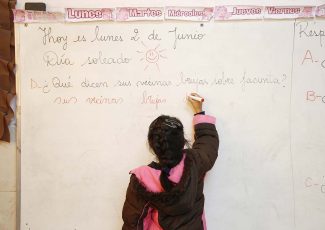 Lunes Martes Miércoles Jueves Viernes
Hoy es lunes 2 de Junio
Día soleado
D. ¿Qué dicen sus vecinas brujas sobre Jacinta?
sus vecinas brujas
A-
B-